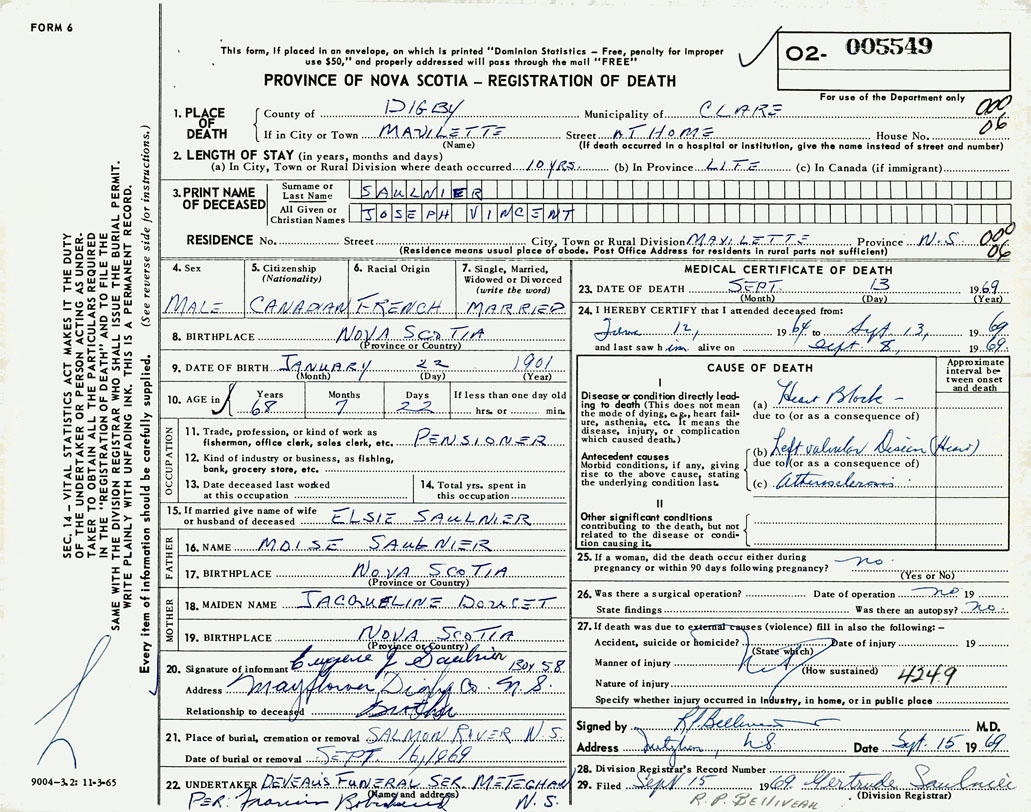 FORM 6
This form, if placed in an envelope, on which is printed "Dominion Statistics – Free, penalty for improper
use $50," and properly addressed will pass through the mail "FREE"
O2- 005549
For use of the Department only
PROVINCE OF NOVA SCOTIA – REGISTRATION OF DEATH
1. PLACE OF DEATH
County of DIGBY Municipality of CLARE 000
If in City or Town MAVILETTE Street AT HOME House No. 06
(Name) (If death occurred in a hospital or institution, give the name instead of street and number)
2. LENGTH OF STAY (in years, months and days)
(a) In City, Town or Rural Division where death occurred 10 YRS. (b) In Province LIFE (c) In Canada (if immigrant)
3. PRINT NAME OF DECEASED
Surname or Last Name SAULNIER
All Given or Christian Names JOSEPH VINCENT
RESIDENCE No. Street City, Town or Rural Division MAVILETTE Province N.S. 000
(Residence means usual place of abode. Post Office Address for residents in rural parts not sufficient) 06
4. Sex MALE
5. Citizenship (Nationality) CANADIAN
6. Racial Origin FRENCH
7. Single, Married, Widowed or Divorced (write the word) MARRIED
8. BIRTHPLACE NOVA SCOTIA
(Province or Country)
9. DATE OF BIRTH JANUARY 22 1901
(Month) (Day) (Year)
10. AGE in Years 68 Months 7 Days 22 If less than one day old hrs. or min.
OCCUPATION
11. Trade, profession, or kind of work as
fisherman, office clerk, sales clerk, etc. PENSIONER
12. Kind of industry or business, as fishing,
bank, grocery store, etc.
13. Date deceased last worked
at this occupation
14. Total yrs. spent in
this occupation
15. If married give name of wife
or husband of deceased ELSIE SAULNIER
FATHER
16. NAME MOISE SAULNIER
17. BIRTHPLACE NOVA SCOTIA
(Province or Country)
MOTHER
18. MAIDEN NAME JACQUELINE DOUCET
19. BIRTHPLACE NOVA SCOTIA
(Province or Country)
20. Signature of informant Eugene J Saulnier BOX 58
Address Mayflower Digby Co. N.S.
Relationship to deceased Brother
21. Place of burial, cremation or removal SALMON RIVER N.S.
Date of burial or removal SEPT. 16, 1969
22. UNDERTAKER DEVEAU'S FUNERAL SER. METEGHAN
(Name and address)
PER: Francis N.S.
MEDICAL CERTIFICATE OF DEATH
23. DATE OF DEATH SEPT. 13 1969
(Month) (Day) (Year)
24. I HEREBY CERTIFY that I attended deceased from:
June 12, 1964 to Sept 13, 1969
and last saw him alive on Sept 8, 1969.
CAUSE OF DEATH
Approximate interval between onset and death
I
Disease or condition directly leading
to death (This does not mean
the mode of dying, e.g., heart failure,
asthenia, etc. It means the
disease, injury, or complication
which caused death.)
(a) Heart Block –
due to (or as a consequence of)
Antecedent causes
Morbid conditions, if any, giving
rise to the above cause, stating
the underlying condition last.
(b) Left valvular Disease (Heart)
due to (or as a consequence of)
(c) Atherosclerosis
II
Other significant conditions
contributing to the death, but not
related to the disease or condition
causing it.
25. If a woman, did the death occur either during
pregnancy or within 90 days following pregnancy? no.
(Yes or No)
26. Was there a surgical operation? Date of operation no 19
State findings Was there an autopsy? no.
27. If death was due to external causes (violence) fill in also the following:–
Accident, suicide or homicide? Date of injury 19
(State which)
Manner of injury
(How sustained) 4249
Nature of injury
Specify whether injury occurred in industry, in home, or in public place
Signed by R P Belliveau M.D.
Address Meteghan, N.S. Date Sept. 15 1969
28. Division Registrar's Record Number
29. Filed Sept 15 1969 Gertrude Saulnier
(Division Registrar)
R. P. BELLIVEAU
SEC. 14 – VITAL STATISTICS ACT MAKES IT THE DUTY
OF THE UNDERTAKER OR PERSON ACTING AS UNDERTAKER
TO OBTAIN ALL THE PARTICULARS REQUIRED
IN THE "REGISTRATION OF DEATH" AND TO FILE THE
SAME WITH THE DIVISION REGISTRAR WHO SHALL ISSUE THE BURIAL PERMIT.
WRITE PLAINLY WITH UNFADING INK. THIS IS A PERMANENT RECORD.
Every item of information should be carefully supplied. (See reverse side for instructions.)
9004–3.2: 11-3-65